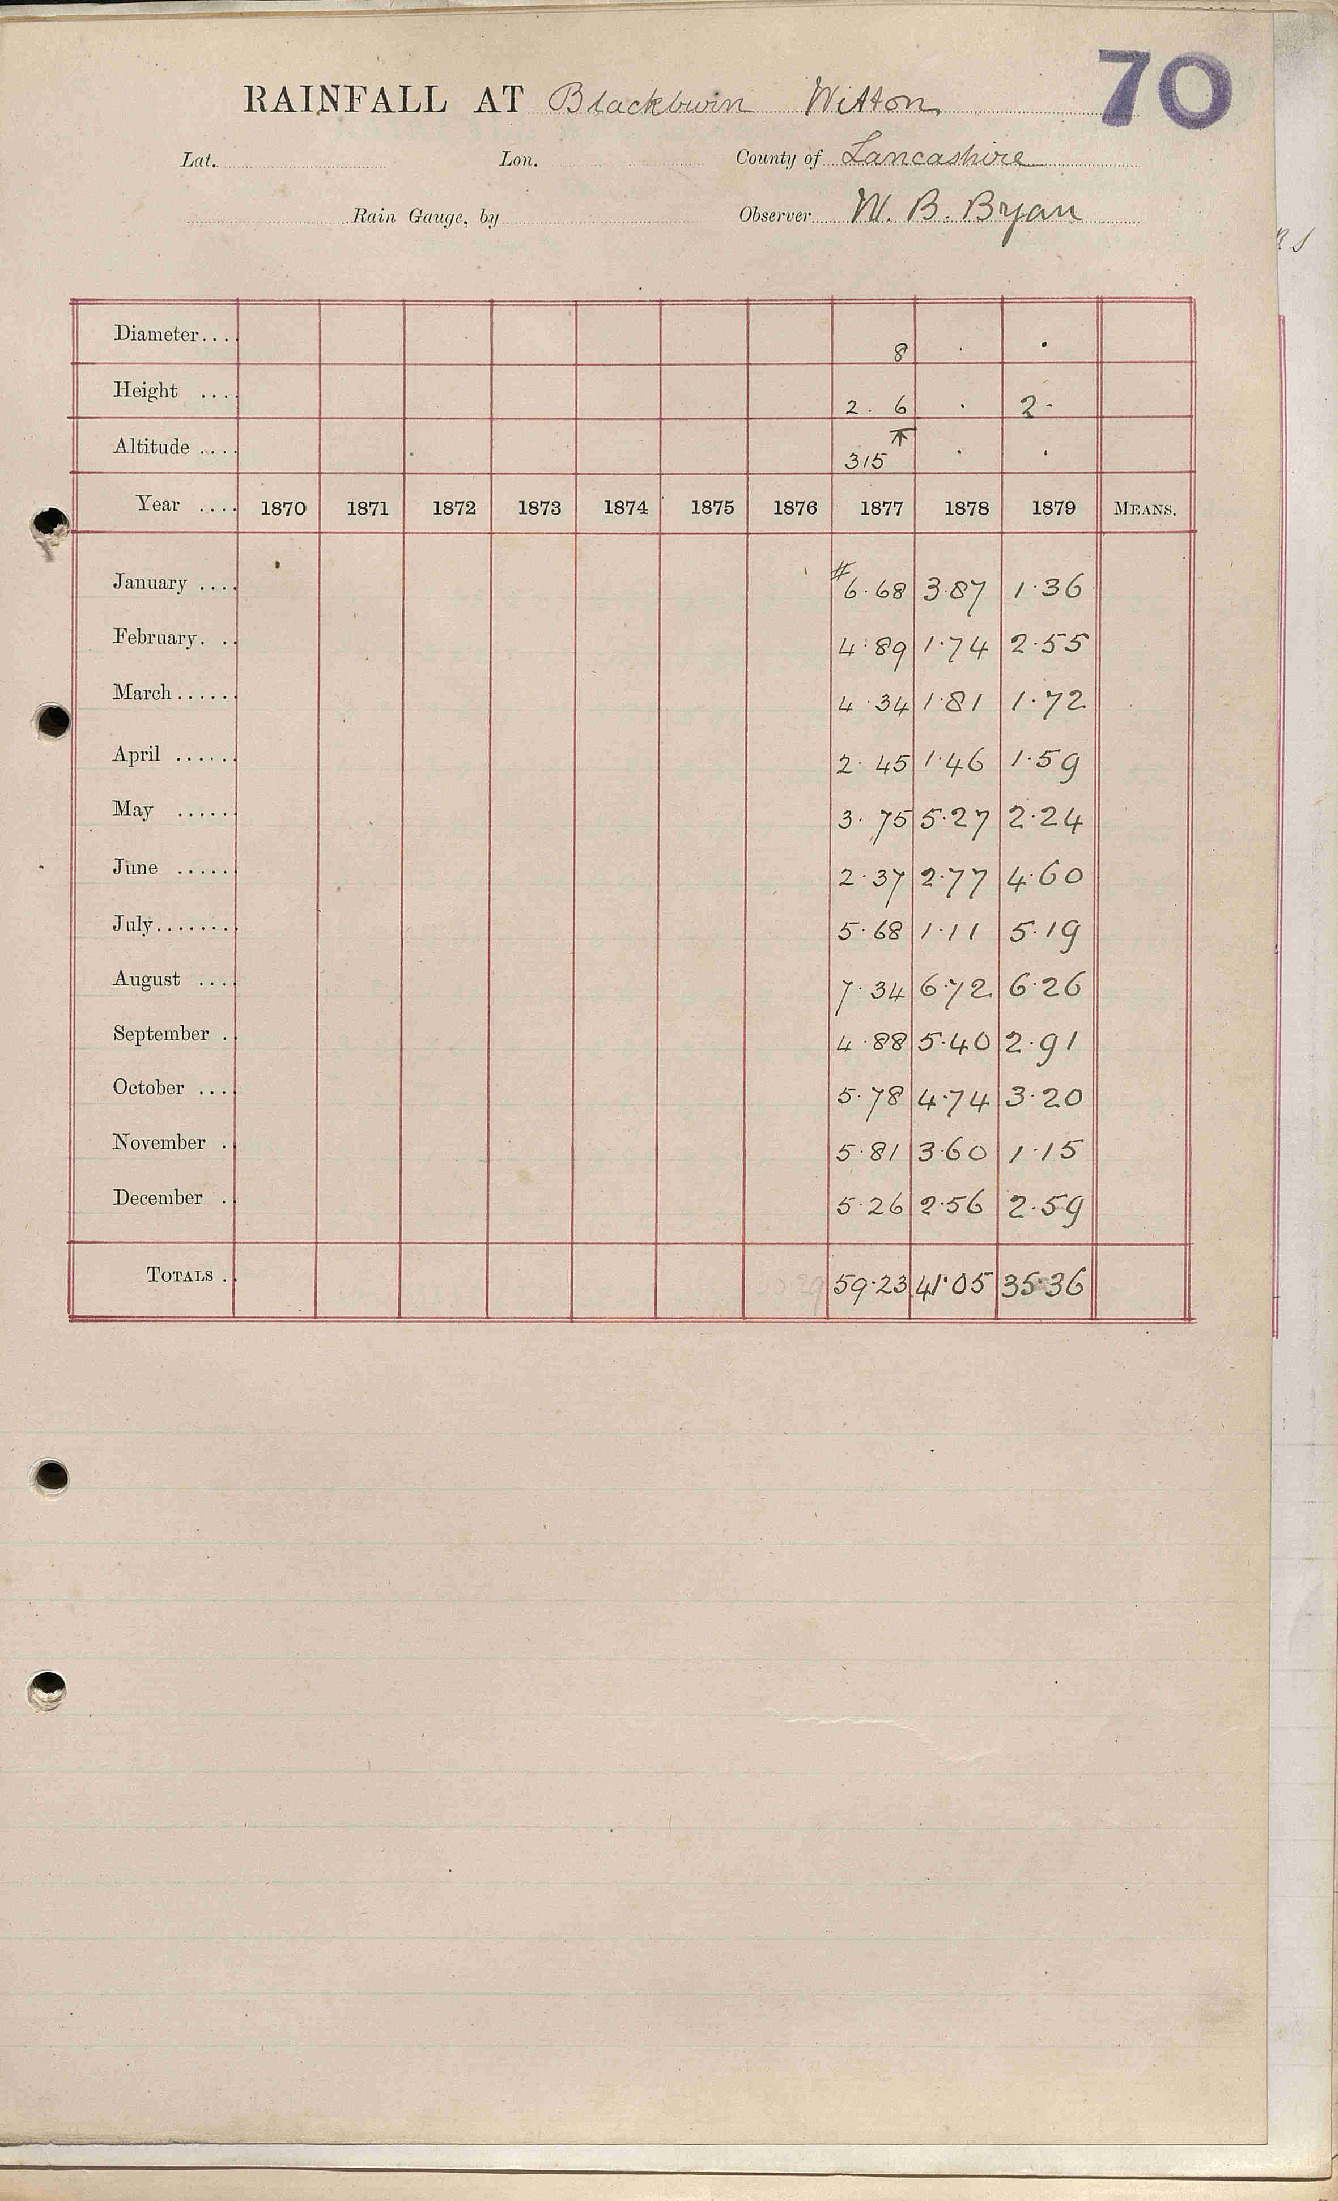 70
RAINFALL AT Blackburn Witton
Lat. Lon. County of Lancashire
Rain Gauge, by Observer W. B. Bryan
Diameter.... 8 . .
Height .... 2. 6 . 2-
Altitude .... 315 T . .
Year .... 1870 1871 1872 1873 1874 1875 1876 1877 1878 1879 MEANS.
January .... # 6.68 3.87 1.36
February. .. 4.89 1.74 2.55
March...... 4.34 1.81 1.72
April ...... 2.45 1.46 1.59
May ...... 3.75 5.27 2.24
June ...... 2.37 2.77 4.60
July........ 5.68 1.11 5.19
August .... 7.34 6.72 6.26
September . 4.88 5.40 2.91
October .... 5.78 4.74 3.20
November . 5.81 3.60 1.15
December . 5.26 2.56 2.59
TOTALS . 59.23 41.05 35.36